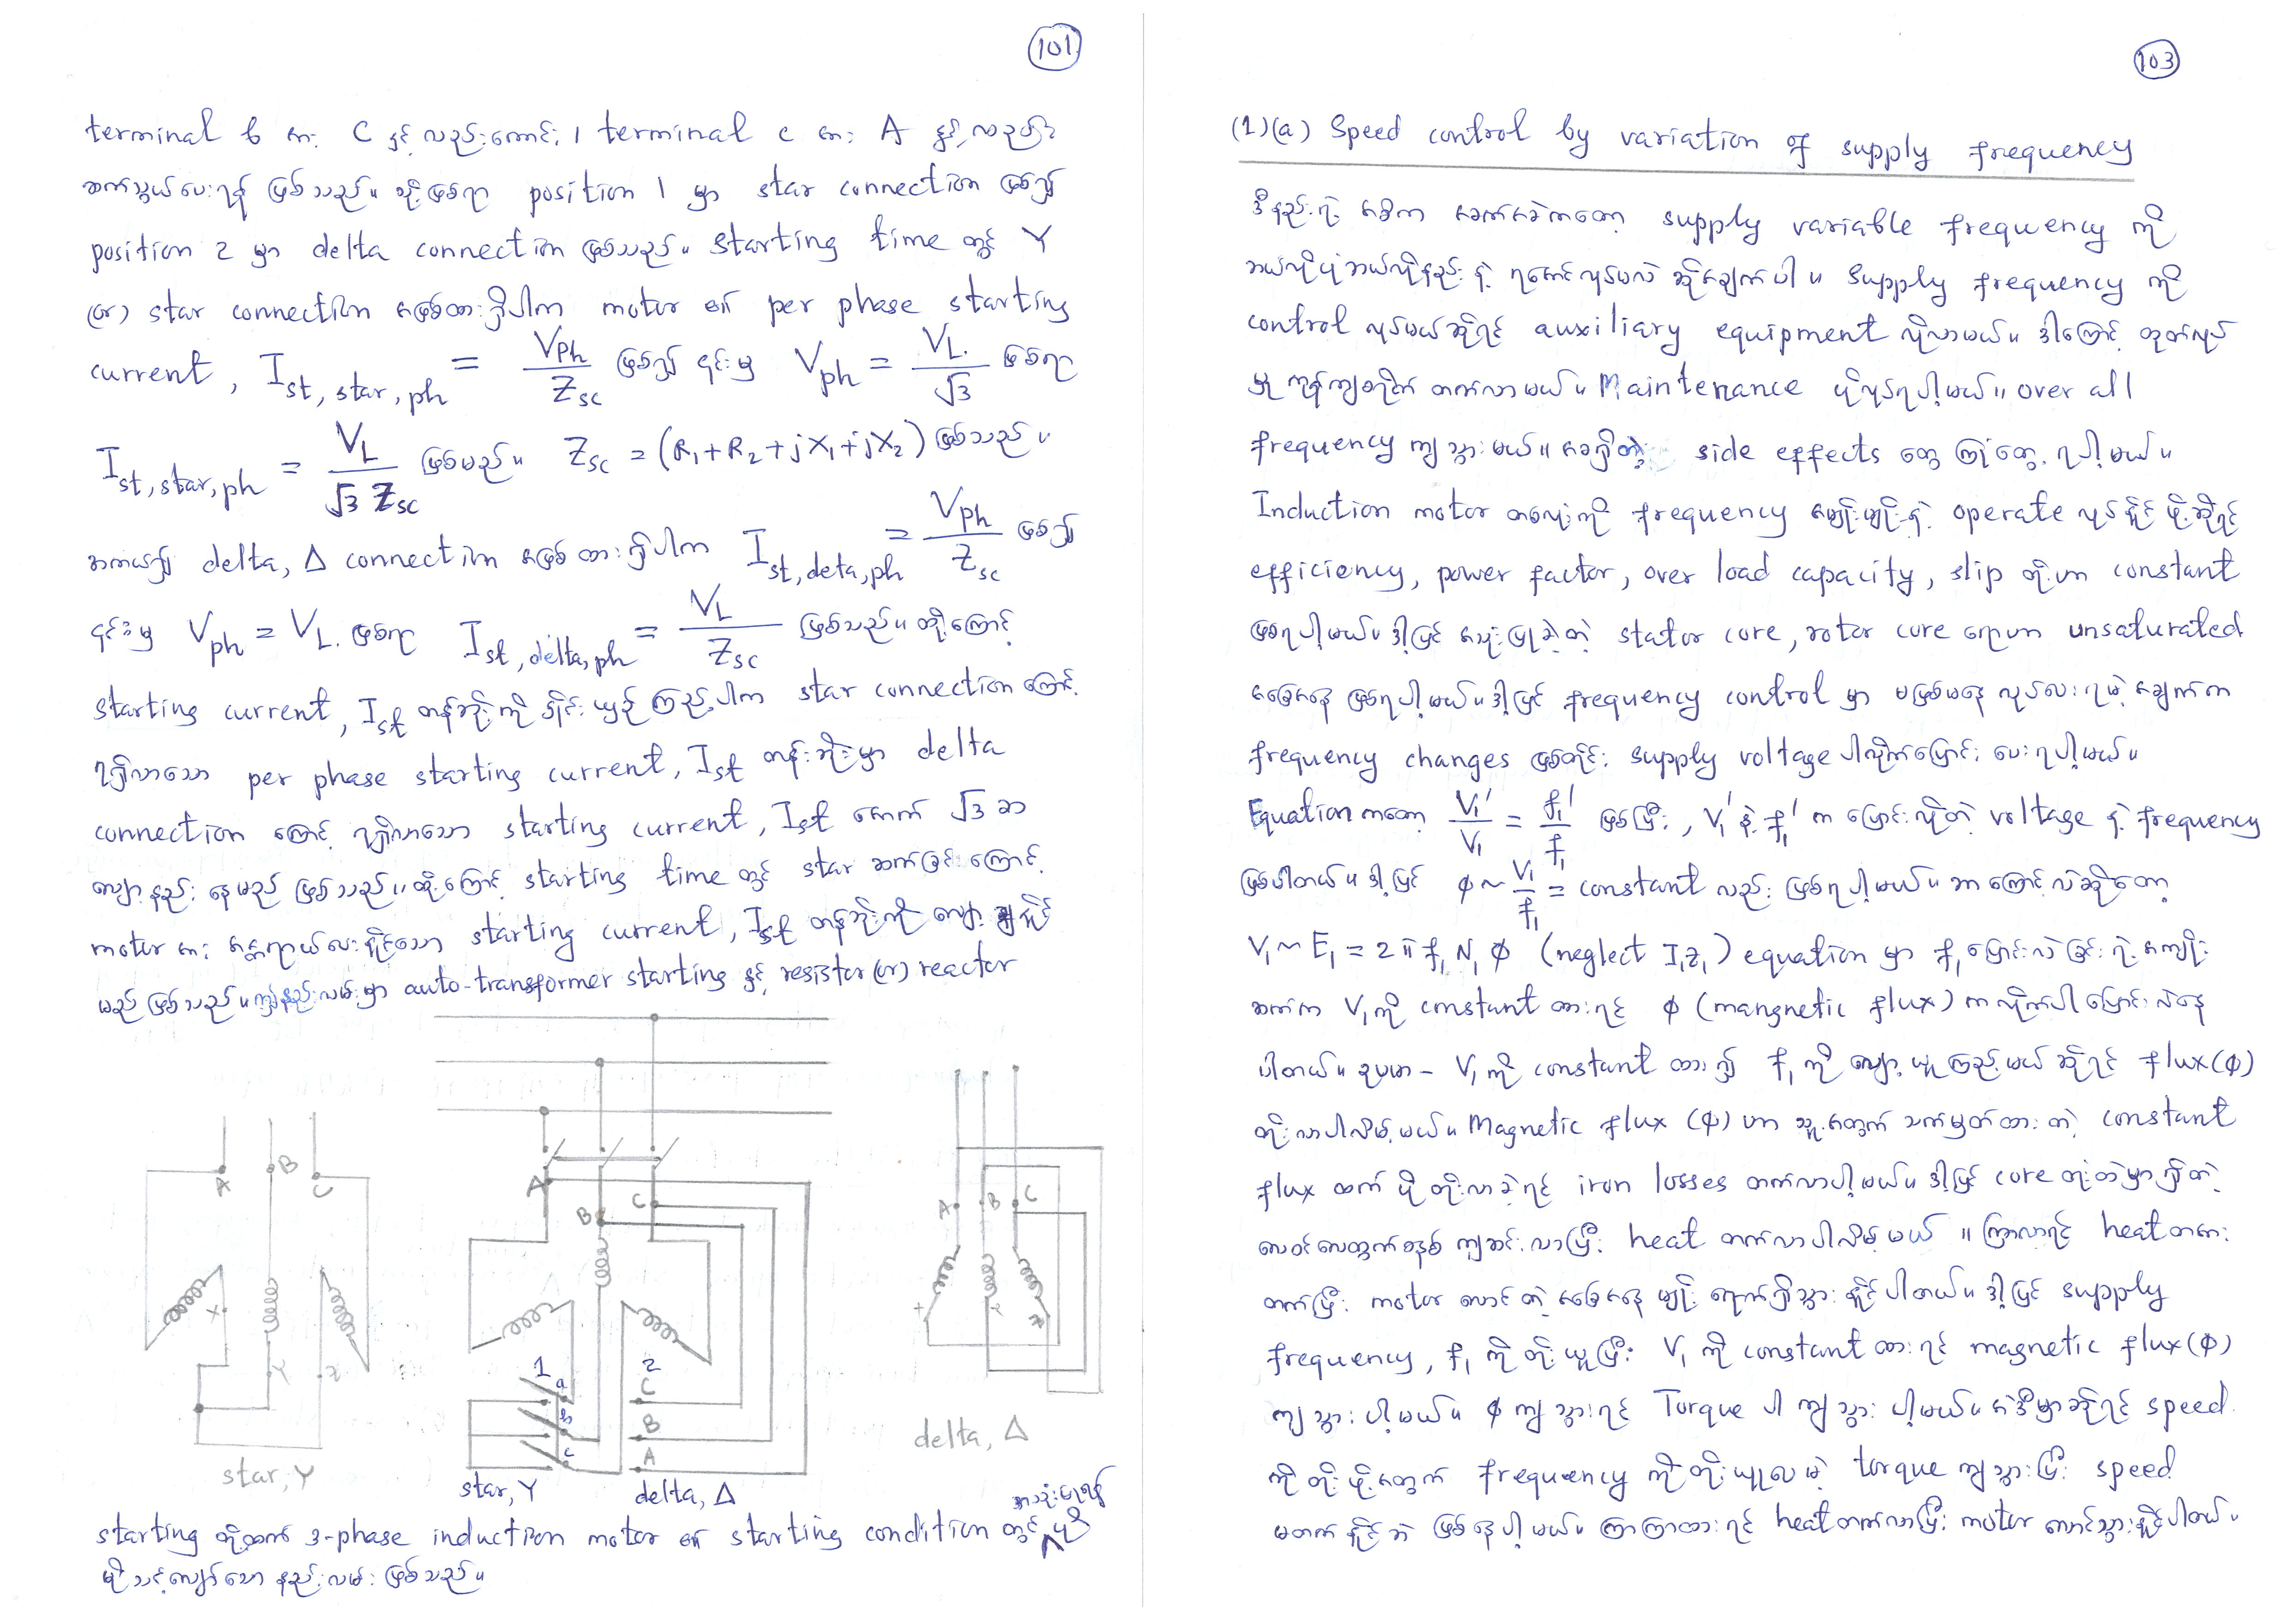 101
terminal b အား C နှင့်လည်းကောင်း၊ terminal c အား A နှင့်လည်းကောင်း
ဆက်သွယ်ပေးရန် ဖြစ်သည်။ သို့ဖြစ်ရာ position 1 မှာ star connection ဖြစ်၍
position 2 မှာ delta connection ဖြစ်သည်။ Starting time တွင် Y
(or) star connection အဖြစ်ထားရှိပါက motor ၏ per phase starting
current, I st, star, ph = Vph / Zsc ဖြစ်၍ ၎င်းမှ Vph = VL. / √3 ဖြစ်ရာ
I st, star, ph = VL / √3 Zsc ဖြစ်မည်။ Zsc = (R1+R2+jX1+jX2) ဖြစ်သည်။
အကယ်၍ delta, Δ connection အဖြစ်ထားရှိပါက I st, deta, ph = Vph / Zsc ဖြစ်၍
၎င်းမှ Vph = VL. ဖြစ်ရာ I st, delta, ph = VL / Zsc ဖြစ်သည်။ ထို့ကြောင့်
starting current, Ist တန်ဖိုးကို နှိုင်းယှဉ်ကြည့်ပါက star connection ကြောင့်
ရရှိလာသော per phase starting current, Ist တန်ဖိုးမှာ delta
connection ကြောင့် ရရှိလာသော starting current, Ist အောက် √3 ဆ
လျော့နည်းနေမည် ဖြစ်သည်။ ထို့ကြောင့် starting time တွင် star ဆက်ခြင်းကြောင့်
motor အား အန္တရာယ်ပေးနိုင်သော starting current, Ist တန်ဖိုးကို လျော့ချနိုင်
မည်ဖြစ်သည်။ ဤနည်းလမ်းမှာ auto-transformer starting နှင့် resistor (or) reactor
A B C
x Y z
star, Y
A B C
1 2
a b c
C B A
star, Y delta, Δ
A B C
delta, Δ
အသုံးပြုရန်
starting တို့ထက် 3-phase induction motor ၏ starting condition တွင် ပို
မိုသင့်လျော်သော နည်းလမ်းဖြစ်သည်။
103
(1)(a) Speed control by variation of supply frequency
ဒီနည်းရဲ့ အဓိက အခက်အခဲကတော့ supply variable frequency ကို
ဘယ်လိုပုံ ဘယ်လိုနည်းနဲ့ ရအောင်လုပ်မလဲ ဆိုအချက်ပါ။ Supply frequency ကို
control လုပ်မယ်ဆိုရင် auxiliary equipment လိုလာမယ်။ ဒါကြောင့် ထုတ်လုပ်
မှု ကုန်ကျစရိတ် တက်လာမယ်။ Maintenance ပိုလုပ်ရပါ့မယ်။ over all
frequency ကျသွားမယ်။ အခြားတဲ့ side effects တွေ ကြုံတွေ့ရပါ့မယ်။
Induction motor တလုံးကို frequency အမျိုးမျိုးနဲ့ operate လုပ်နိုင်ဖို့ဆိုရင်
efficiency, power factor, over load capacity, slip တို့ဟာ constant
ဖြစ်ရပါ့မယ်။ ဒါ့ပြင် အသုံးပြုခဲ့တဲ့ stator core, rotor core တွေဟာ unsaturated
အခြေအနေ ဖြစ်ရပါ့မယ်။ ဒါ့ပြင် frequency control မှာ မဖြစ်မနေ လုပ်ပေးရမဲ့ အချက်က
frequency changes ဖြစ်တိုင်း supply voltage ပါလိုက်ပြောင်းပေးရပါ့မယ်။
Equation ကတော့ V1' / V1 = f1' / f1 ဖြစ်ပြီး, V1' နဲ့ f1' က ပြောင်းလိုတဲ့ voltage နဲ့ frequency
ဖြစ်ပါတယ်။ ဒါ့ပြင် ϕ ~ V1 / f1 = constant လည်း ဖြစ်ရပါ့မယ်။ ဘာကြောင့်လဲဆိုတော့
V1 ~ E1 = 2π f1 N1 ϕ (neglect I1Z1) equation မှာ f1 ပြောင်းလဲခြင်းရဲ့ အကျိုး
ဆက်က V1 ကို constant ထားရင် ϕ (mangnetic flux) က လိုက်ပါပြောင်းလဲနေ
ပါတယ်။ ဥပမာ- V1 ကို constant ထား၍ f1 ကို လျော့ယူကြည့်မယ်ဆိုရင် flux (ϕ)
တိုးလာပါလိမ့်မယ်။ Magnetic flux (ϕ) ဟာ သူ့အတွက် သတ်မှတ်ထားတဲ့ constant
flux ထက် ပိုတိုးလာခဲ့ရင် iron losses တက်လာပါ့မယ်။ ဒါ့ပြင် core တုံးထဲမှာရှိတဲ့
လေဝင်လေထွက်စနစ် ကျဆင်းလာပြီး heat တက်လာပါလိမ့်မယ်။ ကြာလာရင် heat တအား
တက်ပြီး motor လောင်တဲ့ အခြေအနေမျိုး ရောက်ရှိသွားနိုင်ပါတယ်။ ဒါ့ပြင် supply
frequency, f1 ကို တိုးယူပြီး V1 ကို constant ထားရင် magnetic flux (ϕ)
ကျသွားပါ့မယ်။ ϕ ကျသွားရင် Torque ပါ ကျသွားပါ့မယ်။ အဲဒီမှာဆိုရင် speed
ကို တိုးဖို့အတွက် frequency ကို တိုးယူပေမဲ့ torque ကျသွားပြီး speed
မတက်နိုင်ဘဲ ဖြစ်နေပါ့မယ်။ ကြာကြာထားရင် heat တက်လာပြီး motor လောင်သွားနိုင်ပါတယ်။